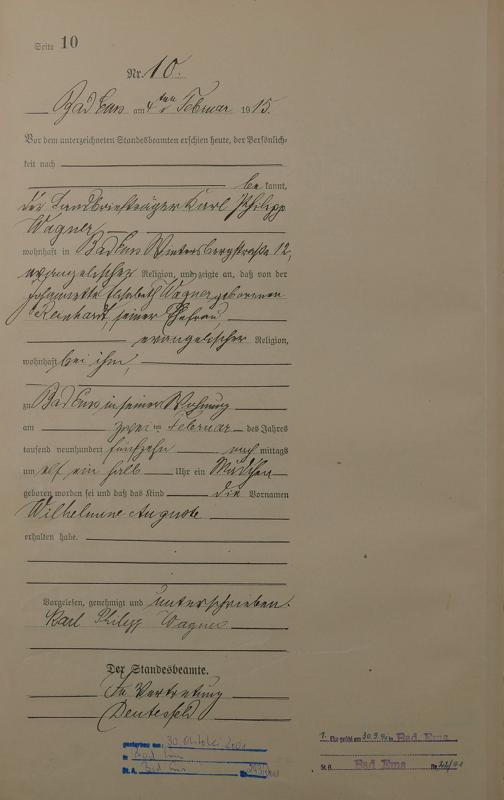 Seite 10
Nr. 10.
Bad Ems am 4ten Februar 1915.
Vor dem unterzeichneten Standesbeamten erschien heute, der Persönlich-
keit nach
be kannt,
der Landbriefträger Karl Philipp
Wagner,
wohnhaft in Bad Ems Wintersbergstraße 12,
evangelischer Religion, und zeigte an, daß von der
Johannette Elisabeth Wagner geborenen
Reinhard, seiner Ehefrau
evangelischer Religion,
wohnhaft bei ihm,
zu Bad Ems in seiner Wohnung
am zweiten Februar des Jahres
tausend neunhundert fünfzehn nach mittags
um elf ein halb Uhr ein Mädchen
geboren worden sei und daß das Kind die Vornamen
Wilhelmine Auguste
erhalten habe.
Vorgelesen, genehmigt und unterschrieben.
Karl Philipp Wagner
Der Standesbeamte.
In Vertretung
gestorben am: 30. Oktober 2001
in Bad Ems
St. A. Bad Ems Nr.
1. Ehe geschl. am 30.9. in Bad Ems
St. A. Bad Ems Nr.